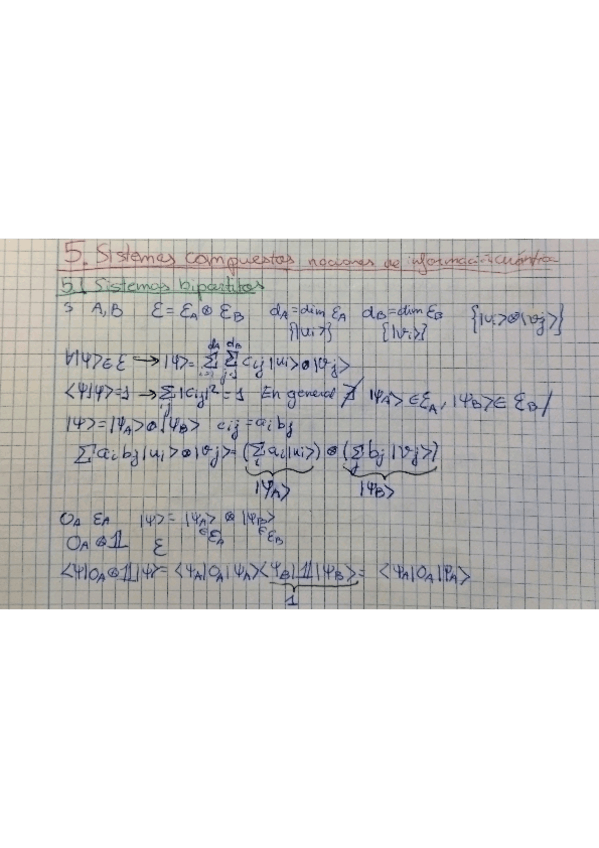 5. Sistemas compuestos nociones de información cuántica
5.1 Sistemas bipartitos
S A,B ℰ = ℰ_A ⊗ ℰ_B d_A = dim ℰ_A d_B = dim ℰ_B {|u_i> ⊗ |v_j>}
{|u_i>} {|v_i>}
∀|ψ> ∈ ℰ → |ψ> = Σ_{i=1}^{d_A} Σ_{j=1}^{d_B} c_ij |u_i> ⊗ |v_j>
<ψ|ψ> = 1 → Σ_{ij} |c_ij|² = 1 En general ∄ |ψ_A> ∈ ℰ_A, |ψ_B> ∈ ℰ_B /
|ψ> = |ψ_A> ⊗ |ψ_B> c_ij = a_i b_j
Σ a_i b_j |u_i> ⊗ |v_j> = (Σ_i a_i |u_i>) ⊗ (Σ_j b_j |v_j>)
|ψ_A> |ψ_B>
O_A ℰ_A |ψ> = |ψ_A> ⊗ |ψ_B>
O_A ⊗ 𝟙 ℰ ∈ℰ_A ∈ℰ_B
<ψ|O_A ⊗ 𝟙|ψ> = <ψ_A|O_A|ψ_A> <ψ_B|𝟙|ψ_B> = <ψ_A|O_A|ψ_A>
1